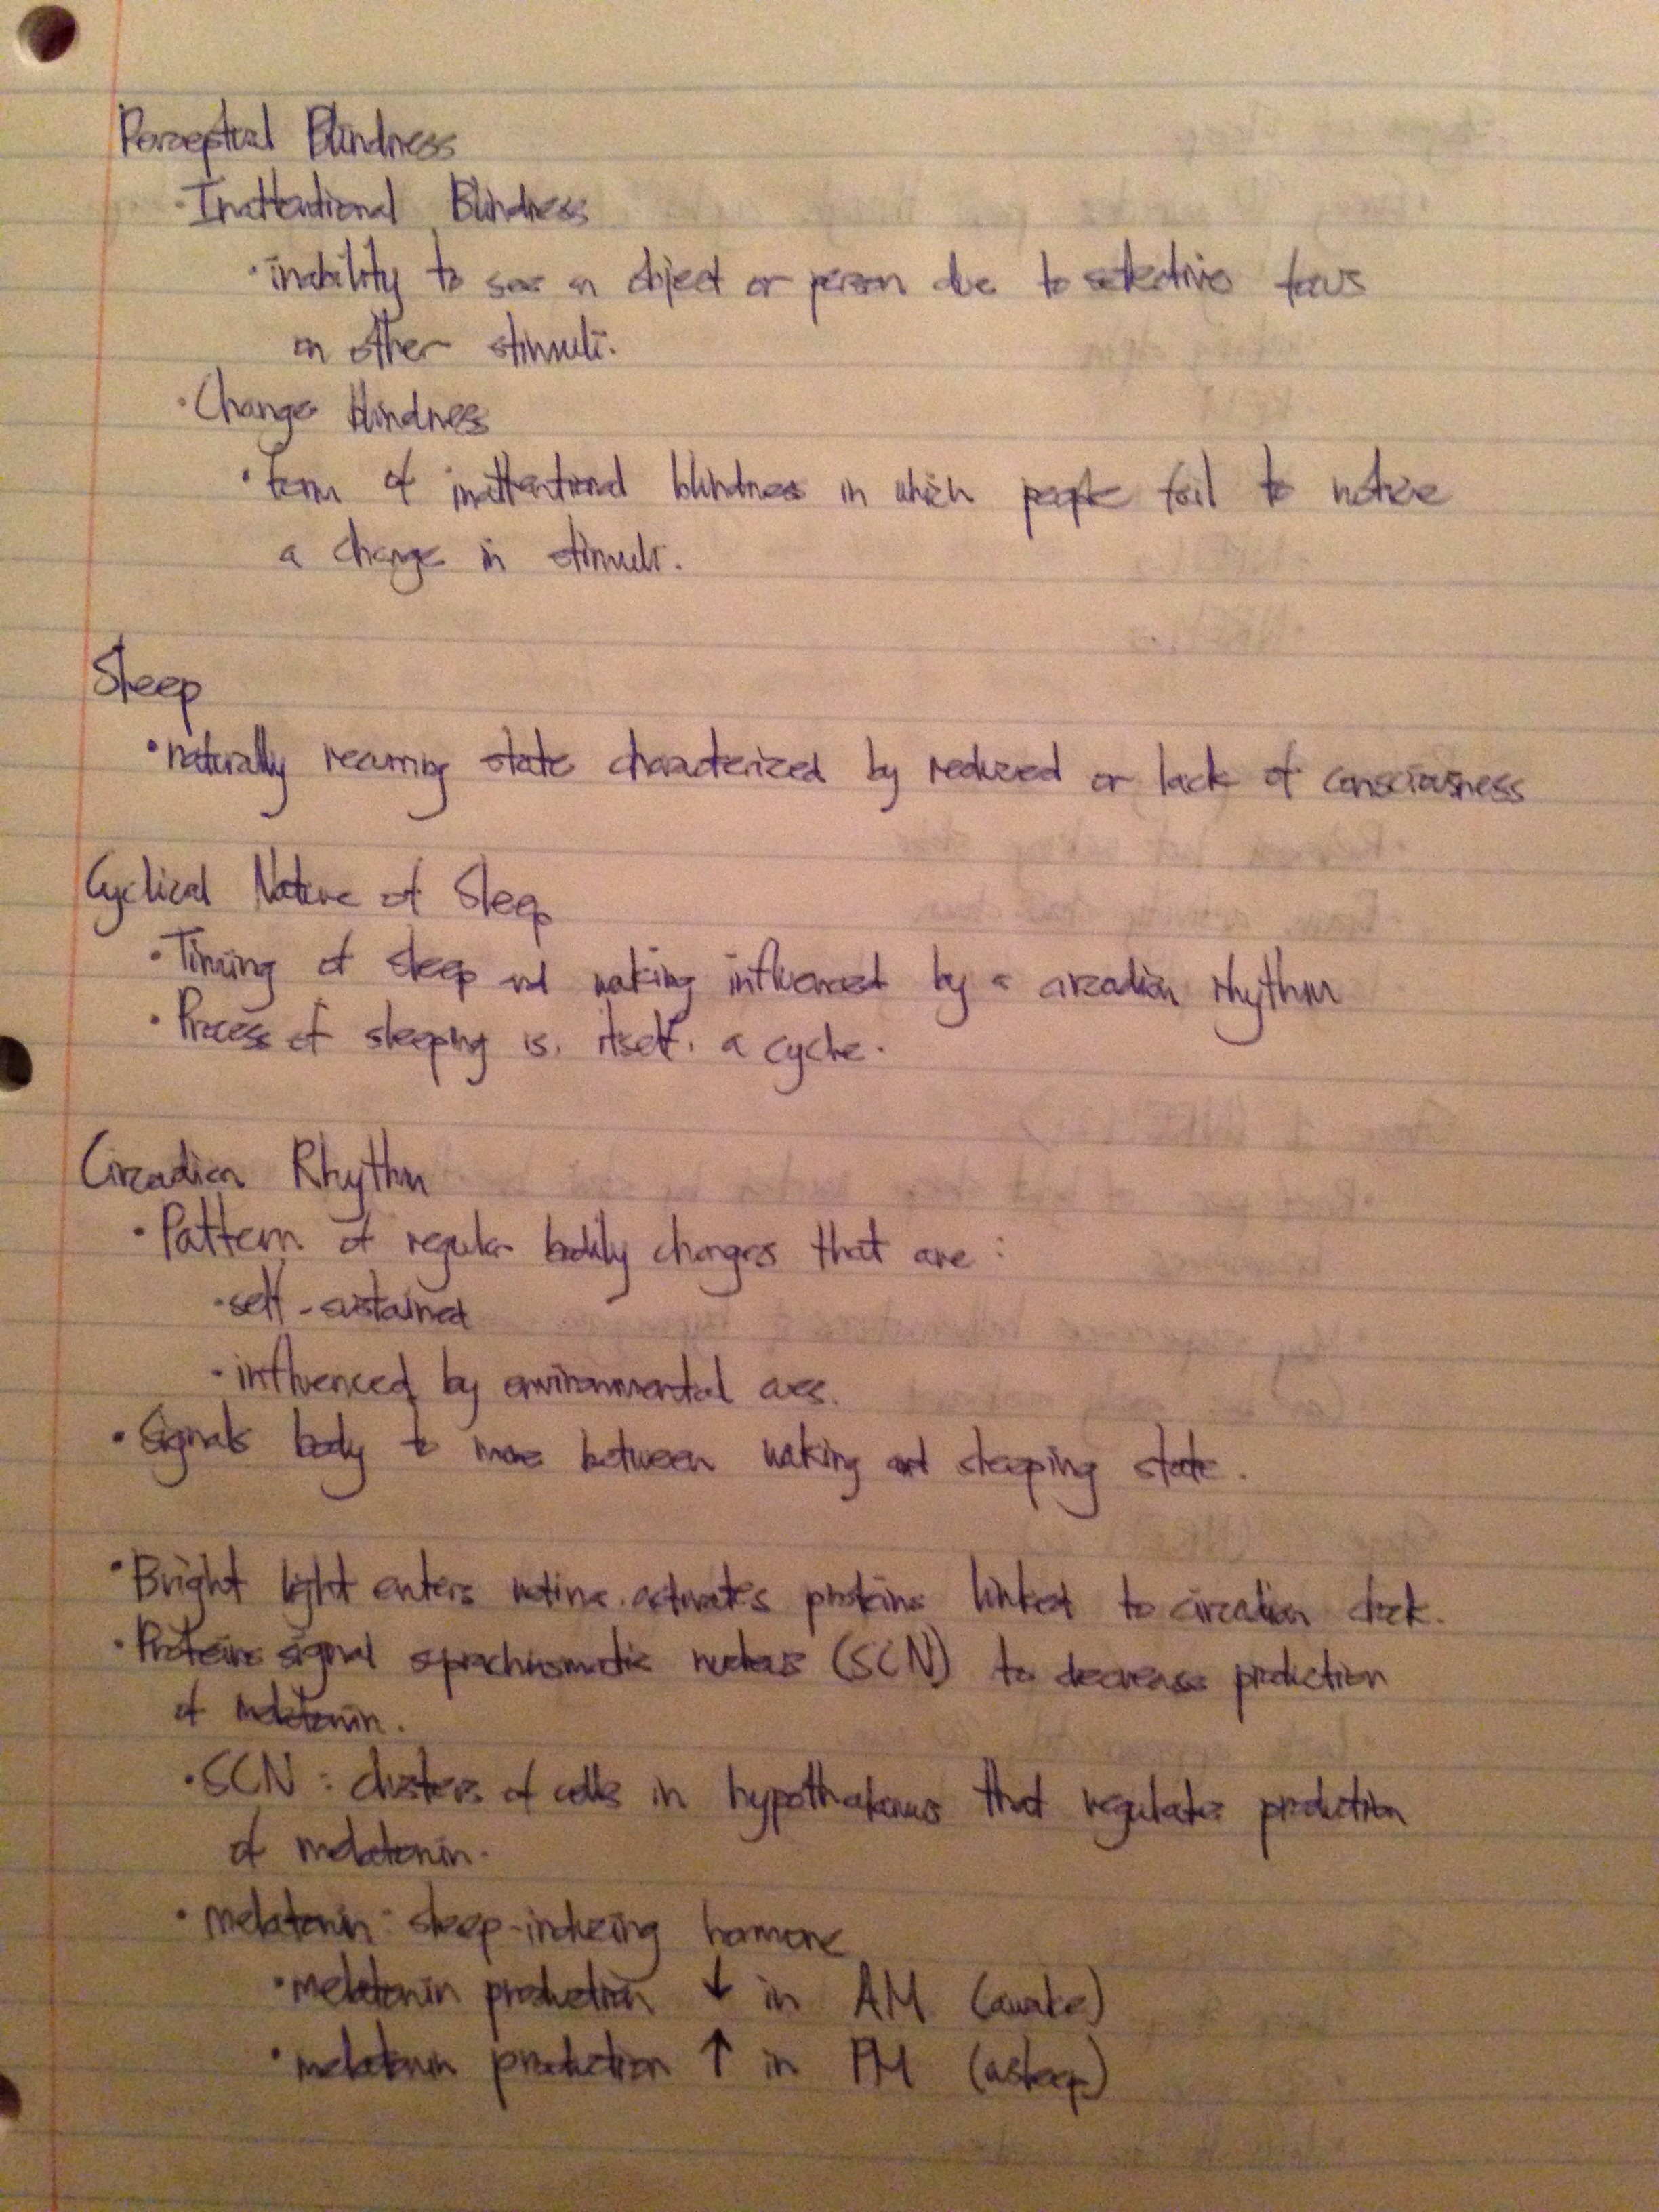 Perceptual Blindness
· Inattentional Blindness
· inability to see an object or person due to selective focus
on other stimuli.
· Change blindness
· form of inattentional blindness in which people fail to notice
a change in stimuli.
Sleep
· naturally recurring state characterized by reduced or lack of consciousness
Cyclical Nature of Sleep
· Timing of sleep and waking influenced by a circadian rhythm
· Process of sleeping is, itself, a cycle.
Circadian Rhythm
· Pattern of regular bodily changes that are:
· self-sustained
· influenced by environmental cues.
· Signals body to move between waking and sleeping state.
· Bright light enters retina, activates proteins linked to circadian clock.
· Proteins signal suprachiasmatic nucleus (SCN) to decrease production
of melatonin.
· SCN: clusters of cells in hypothalamus that regulates production
of melatonin.
· melatonin: sleep-inducing hormone
· melatonin production ↓ in AM (awake)
· melatonin production ↑ in PM (asleep)